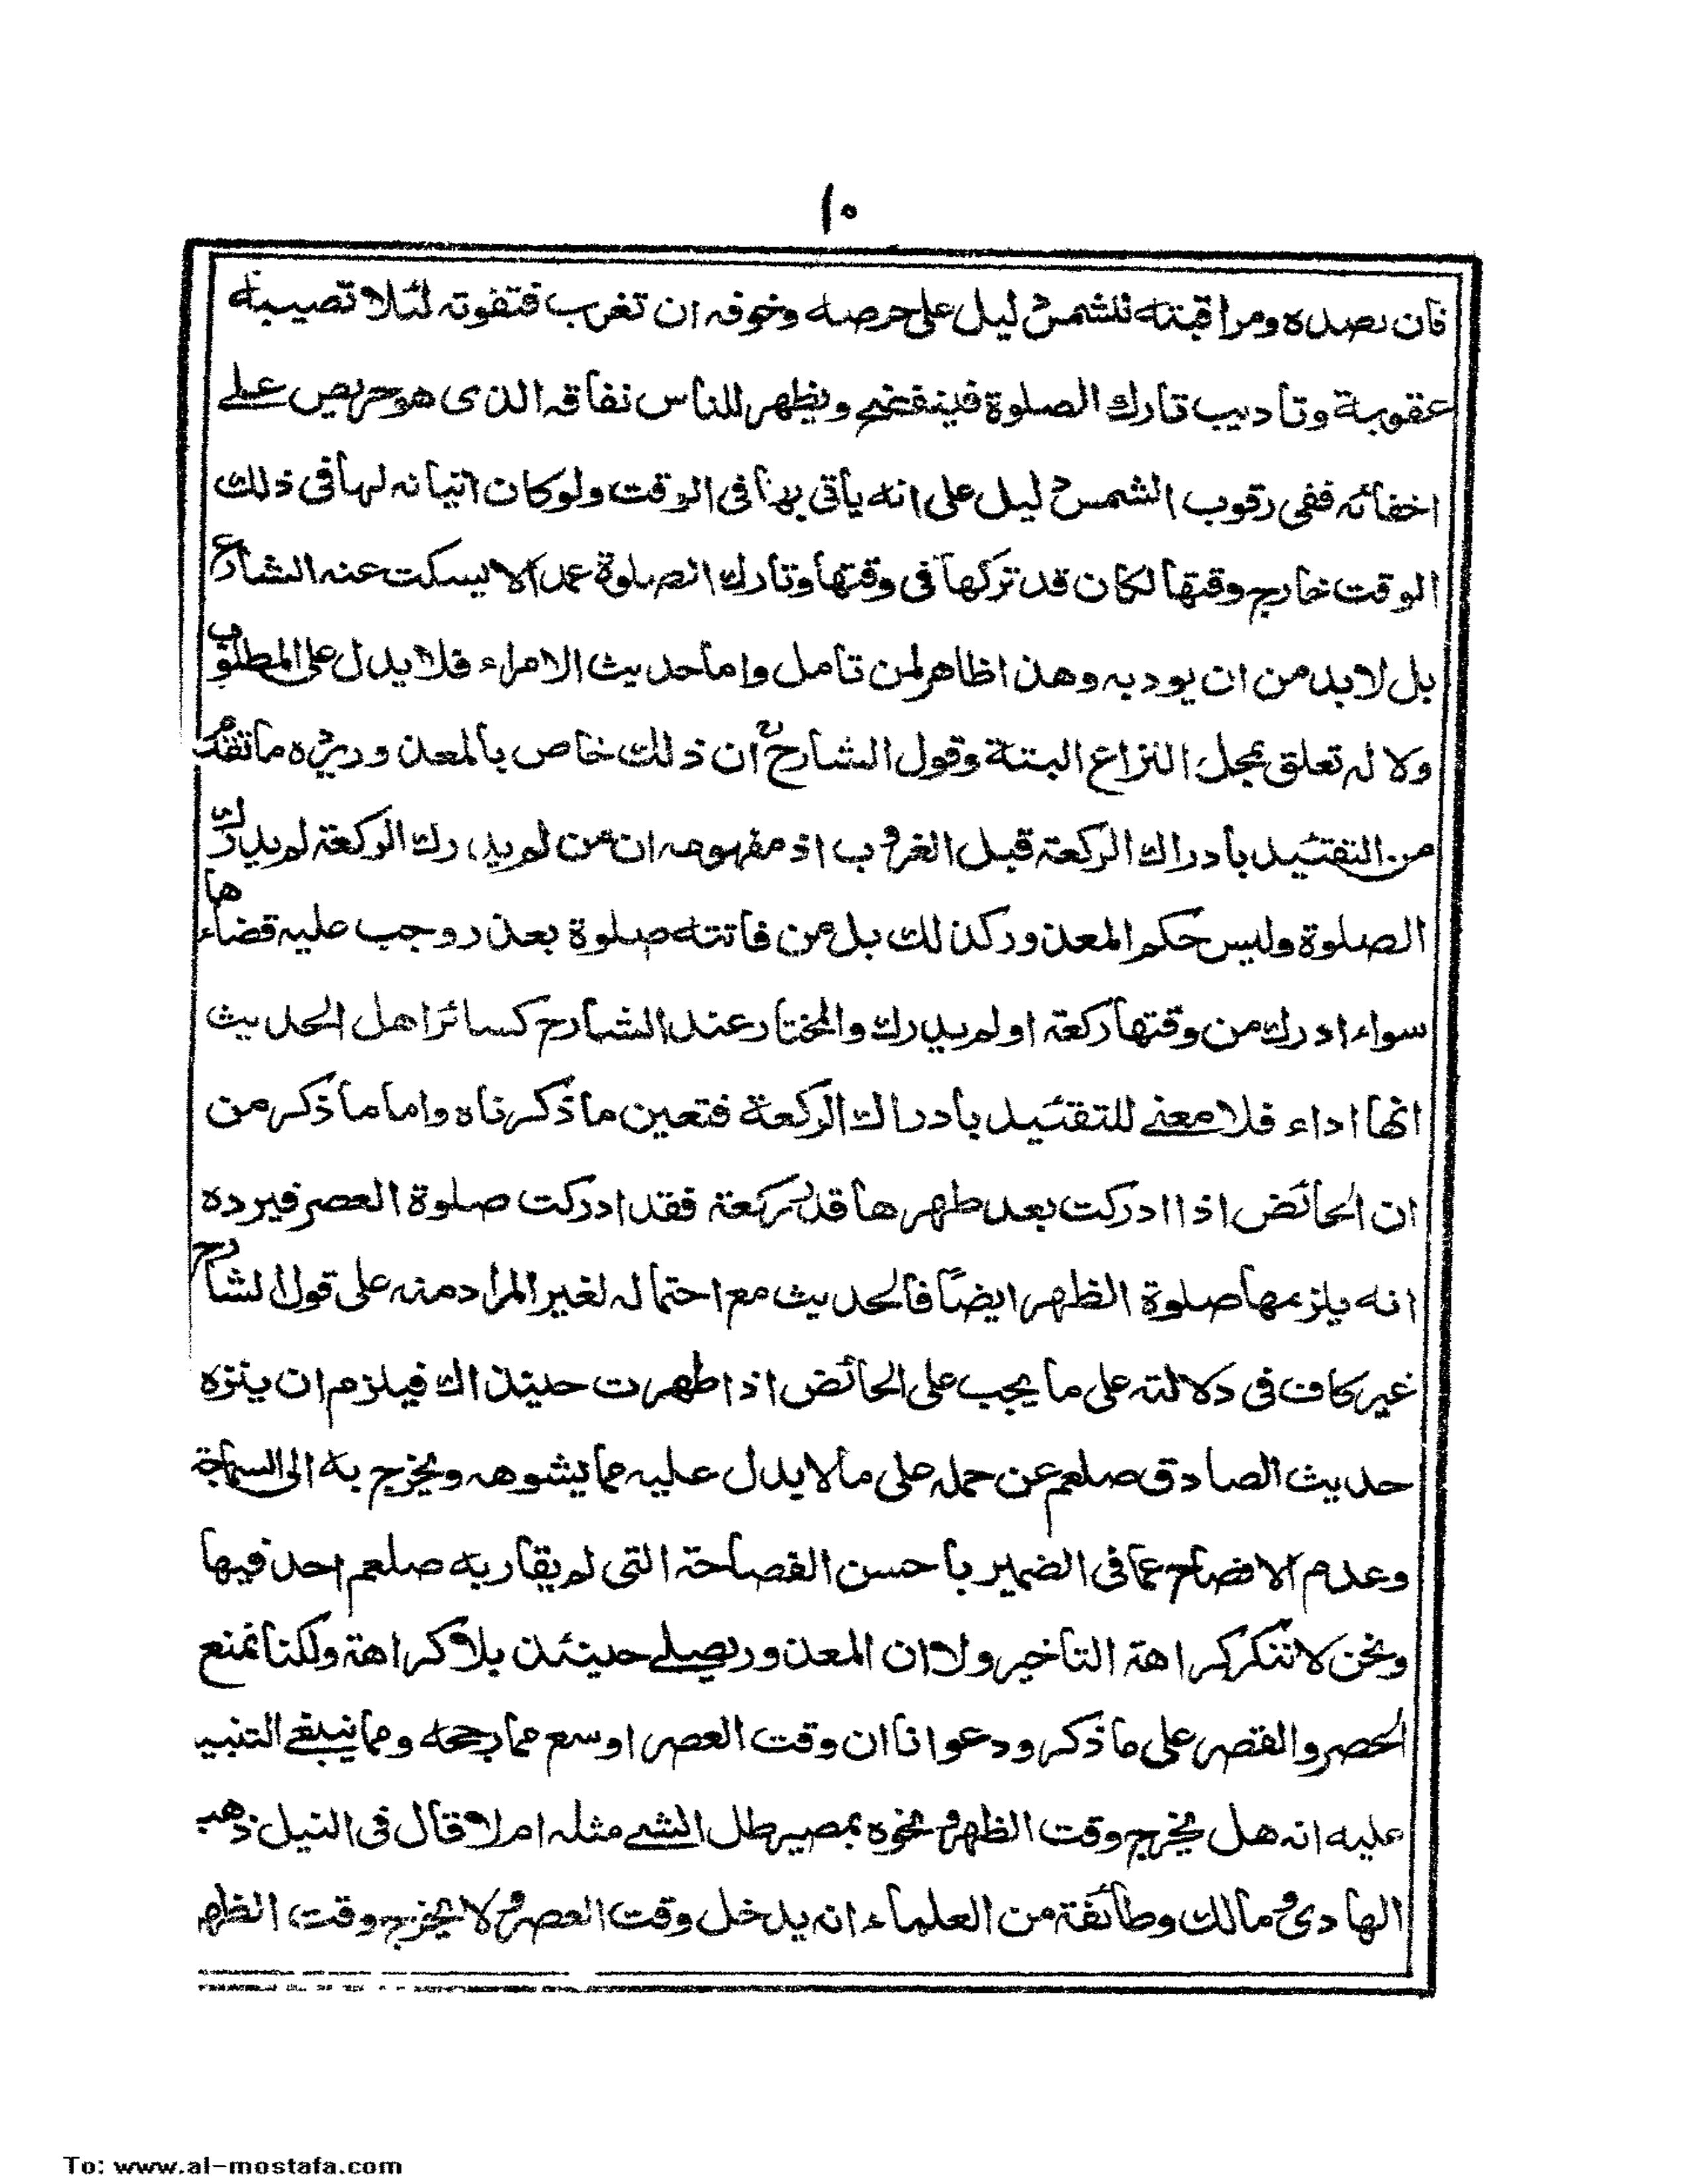 ١٠
فان رصده ومراقبته للشمس دليل على حرصه وخوفه ان تغرب فتفوته لئلا تصيبه
عقوبة وتاديب تارك الصلوة فينفتضح ويظهر للناس نفاقه الذى هو حريص على
اخفائه ففى رقوب الشمس دليل على انه يأتى بها فى الوقت ولو كان اتيانه لها فى ذلك
الوقت خارج وقتها لكان قد تركها فى وقتها وتارك الصلوة عمدا لا يسكت عنه الشارع
بل لابد من ان يودبه وهذا ظاهر لمن تامل واما حديث الامراء فلا يدل على المطلوب
ولا له تعلق بمحل النزاع البتة وقول الشارح ان ذلك خاص بالمعذور يرده ما تقدم
من التقئيد بادراك الركعة قبل الغروب اذ مفهومه ان من لم يدرك الركعة لم يدرك
الصلوة وليس حكم المعذور كذلك بل من فاتته صلوة بعذر وجب عليه قضاءها
سواء ادرك من وقتها ركعة او لم يدرك والمختار عند الشارح كسائر اهل الحديث
انها اداء فلا معنى للتقئيد بادراك الركعة فتعين ما ذكرناه واما ما ذكر من
ان الحائض اذا ادركت بعد طهرها قدر ركعة فقد ادركت صلوة العصر فيرده
انه يلزمها صلوة الظهر ايضاً فالحديث مع احتماله لغير المراد منه على قول الشارح
غير كاف فى دلالته على ما يجب على الحائض اذا طهرت حينذاك فيلزم ان ينزه
حديث الصادق صلعم عن حمله على ما لا يدل عليه مما يشوهه ويخرج به الى السماجة
وعدم الافصاح عما فى الضمير باحسن الفصاحة التى لم يقاربه صلعم احد فيها
ونحن لا ننكر كراهة التأخير ولا ان المعذور يصلى حينئذ بلا كراهة ولكنا نمنع
الحصر والقصر على ما ذكر ودعوانا ان وقت العصر اوسع مما رجحه ومما ينبغى التنبيه
عليه انه هل يخرج وقت الظهر ونحوه بمصير ظل الشئ مثله ام لا قال فى النيل ذهب
الهادى ومالك وطائفة من العلماء انه يدخل وقت العصر ولا يخرج وقت الظهر
To: www.al-mostafa.com